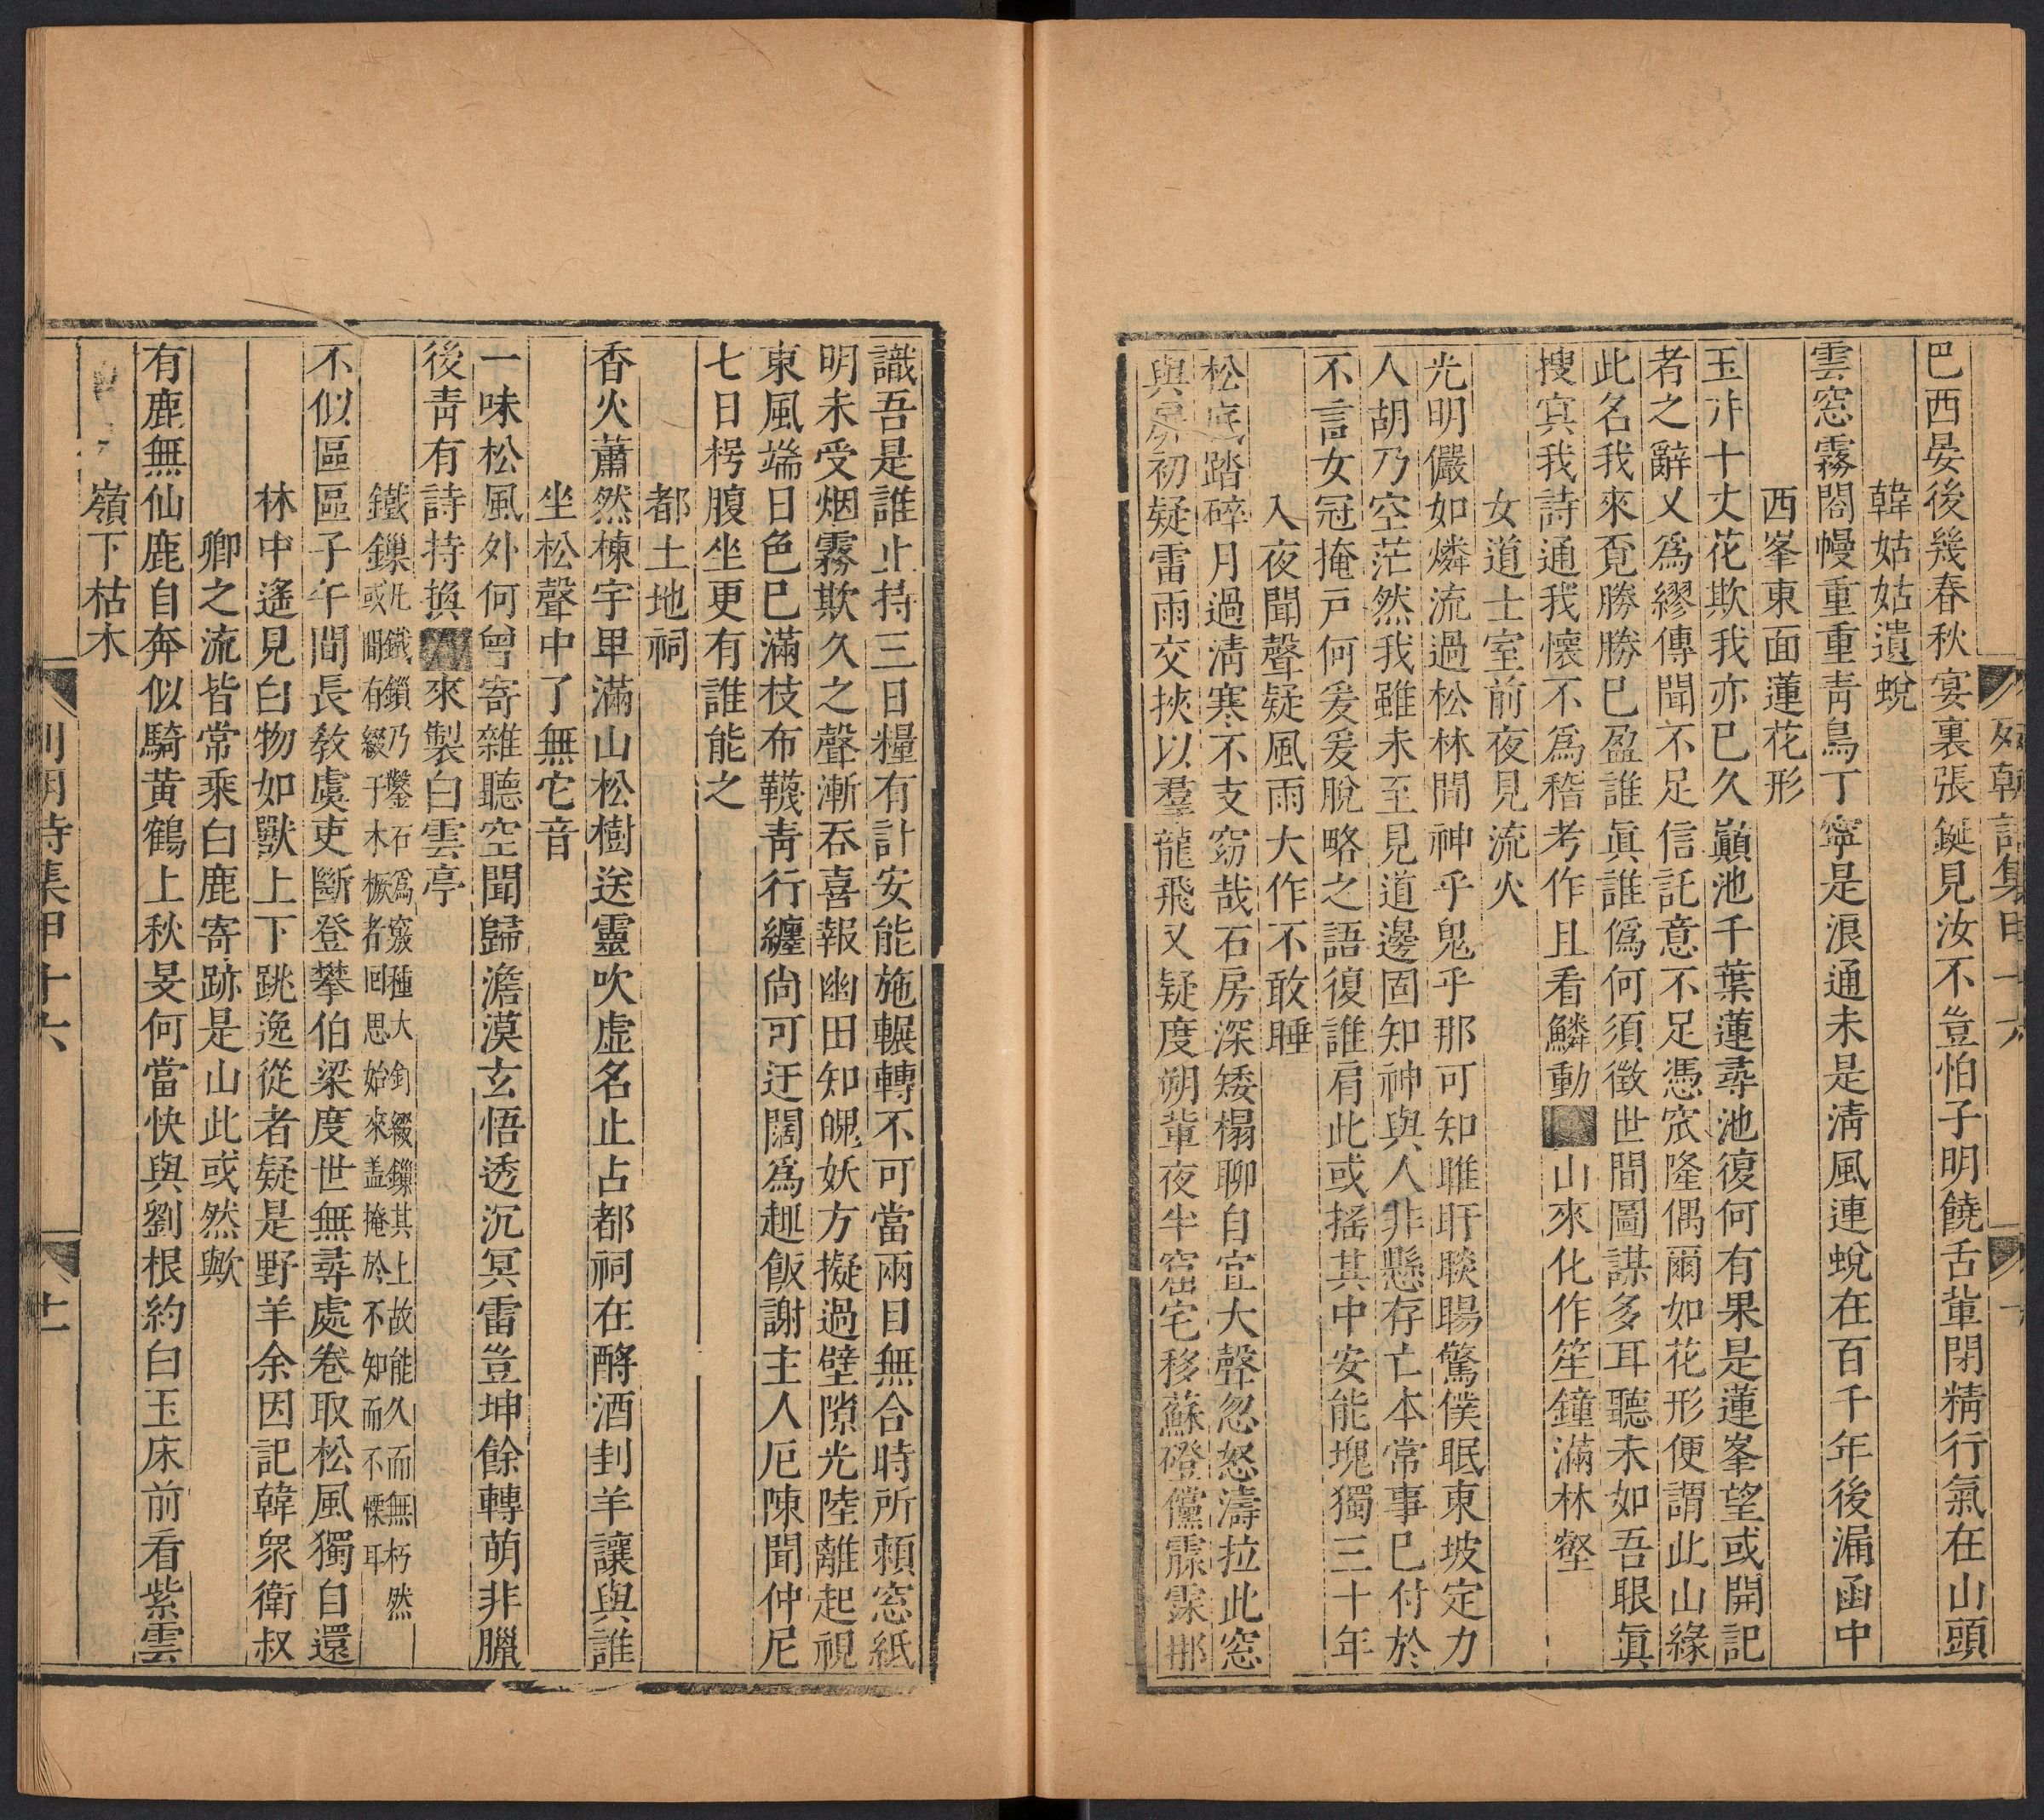 列朝詩集甲十六
巴西晏後幾春秋宴裏張鋋見汝不豈怕子明饒舌輩閉精行氣在山頭
韓姑姑遺蛻
雲窓霧閤幔重重靑鳥丁寧是浪通未是淸風連蛻在百千年後漏函中
西峯東面蓮花形
玉井十丈花欺我亦已久巔池千葉蓮尋池復何有果是蓮峯望或開記
者之辭又爲繆傳聞不足信託意不足憑窊隆偶爾如花形便謂此山緣
此名我來覔勝勝已盈誰眞誰僞何須徴世間圖謀多耳聽未如吾眼眞
搜㝠我詩通我懷不爲稽考作且看鱗動山來化作笙鐘滿林壑
女道士室前夜見流火
光明儼如燐流過松林間神乎鬼乎那可知睢盱睒暘驚僕眠東坡定力
人胡乃空茫然我雖未至見道邊固知神與人非懸存亡本常事已付於
不言女冠掩戸何爰爰脫略之語復誰肩此或搖其中安能塊獨三十年
入夜聞聲疑風雨大作不敢睡
松底踏碎月過淸寒不支窈哉石房深矮榻聊自宜大聲忽怒濤拉此窓
與房初疑雷雨交挾以羣龍飛又疑度朔輩夜半窟宅移蘇磴儻霡霂挪
識吾是誰止持三日糧有計安能施輾轉不可當兩目無合時所賴窓紙
明未受烟霧欺久之聲漸吞喜報幽田知魄妖方擬過壁隙光陸離起視
東風端日色已滿枝布韈靑行纏尙可迂闊爲趣飯謝主人厄陳聞仲尼
七日枵腹坐更有誰能之
都土地祠
香火蕭然棟宇卑滿山松樹送靈吹虛名止占都祠在酹酒刲羊讓與誰
坐松聲中了無它音
一味松風外何曾寄雜聽空聞歸澹漠玄悟透沉冥雷豈坤餘轉萌非臘
後靑有詩持換來製白雲亭
鐵鏁凡鐵鎖乃鑿石爲竅種大釣綴鏁其上故能久而無朽然
或間有綴于木橛者囘思始來盖掩於不知而不慄耳
不似區區子午間長教虞吏斷登攀伯梁度世無尋處卷取松風獨自還
林中遙見白物如獸上下跳逸從者疑是野羊余因記韓衆衛叔
卿之流皆常乘白鹿寄跡是山此或然歟
有鹿無仙鹿自奔似騎黃鶴上秋旻何當快與劉根約白玉床前看紫雲
嶺下枯木
列朝詩集甲十六
十一